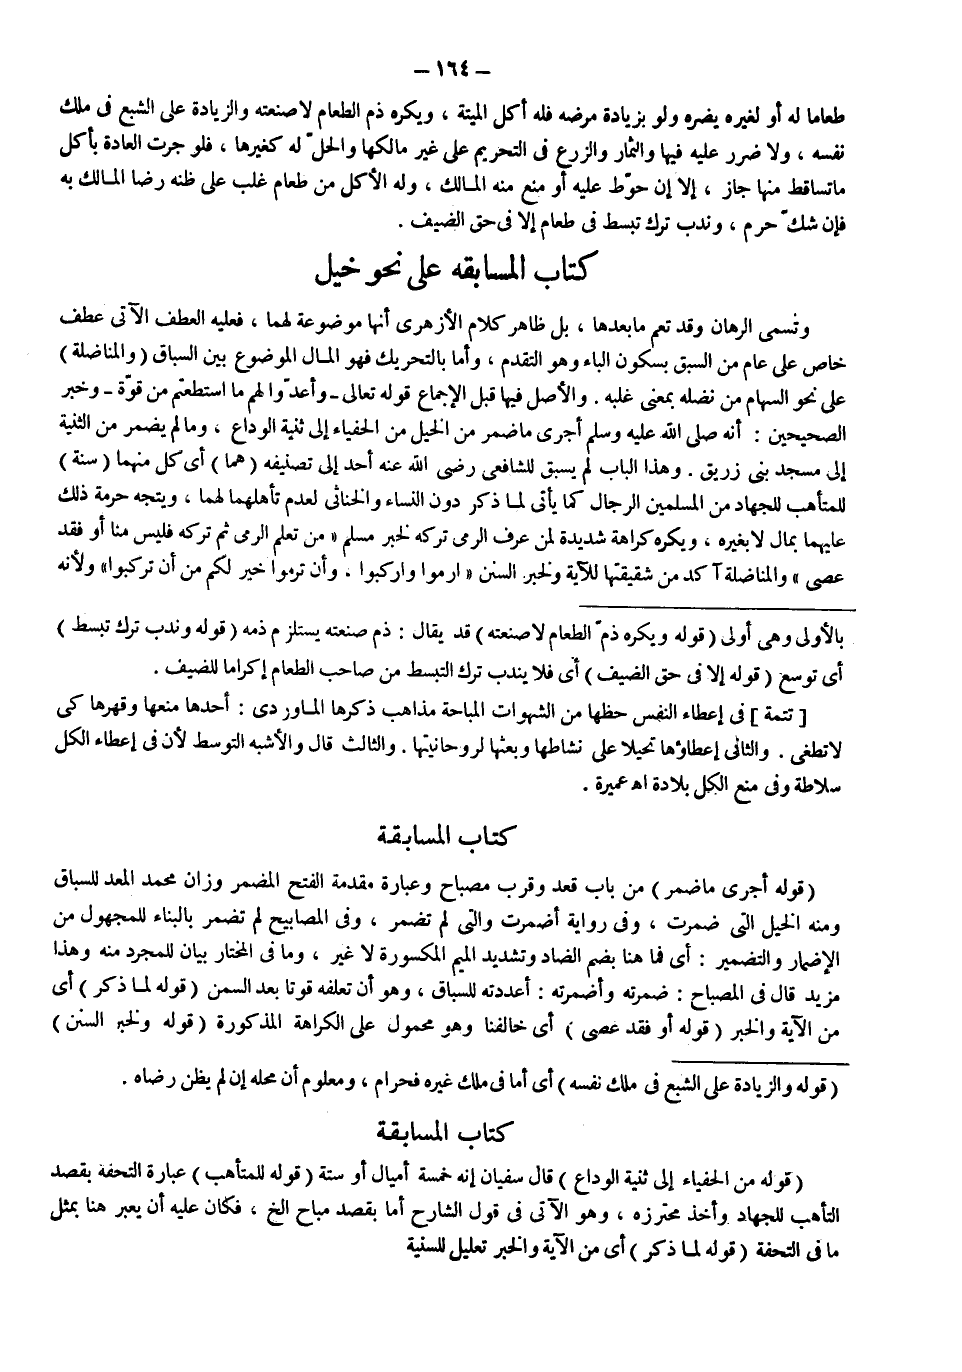 – ١٦٤ –
طعاما له أو لغيره يضره ولو بزيادة مرضه فله أكل الميتة ، ويكره ذم الطعام لاصنعته والزيادة على الشبع فى ملك
نفسه ، ولا ضرر عليه فيها والثمار والزرع فى التحريم على غير مالكها والحلّ له كغيرها ، فلو جرت العادة بأكل
ماتساقط منها جاز ، إلا إن حوّط عليه أو منع منه المالك ، وله الأكل من طعام غلب على ظنه رضا المالك به
فإن شكّ حرم ، وندب ترك تبسط فى طعام إلا فى حق الضيف .
كتاب المسابقه على نحو خيل
وتسمى الرهان وقد تعم مابعدها ، بل ظاهر كلام الأزهرى أنها موضوعة لهما ، فعليه العطف الآتى عطف
خاص على عام من السبق بسكون الباء وهو التقدم ، وأما بالتحريك فهو المال الموضوع بين السباق ( والمناضلة )
على نحو السهام من نضله بمعنى غلبه . والأصل فيها قبل الإجماع قوله تعالى ـ وأعدّوا لهم ما استطعتم من قوّة ـ وخبر
الصحيحين : أنه صلى الله عليه وسلم أجرى ماضمر من الخيل من الحفياء إلى ثنية الوداع ، وما لم يضمر من الثنية
إلى مسجد بنى زريق . وهذا الباب لم يسبق للشافعى رضى الله عنه أحد إلى تصنيفه ( هما ) أى كل منهما ( سنة )
للمتأهب للجهاد من المسلمين الرجال كما يأتى لما ذكر دون النساء والخناثى لعدم تأهلهما لهما ، ويتجه حرمة ذلك
عليهما بمال لابغيره ، ويكره كراهة شديدة لمن عرف الرمى تركه لخبر مسلم « من تعلم الرمى ثم تركه فليس منا أو فقد
عصى » والمناضلة آكد من شقيقتها للآية ولخبر السنن « ارموا واركبوا ، وأن ترموا خير لكم من أن تركبوا» ولأنه
بالأولى وهى أولى ( قوله ويكره ذمّ الطعام لاصنعته ) قد يقال : ذم صنعته يستلزم ذمه ( قوله وندب ترك تبسط )
أى توسع ( قوله إلا فى حق الضيف ) أى فلا يندب ترك التبسط من صاحب الطعام إكراما للضيف .
[ تتمة ] فى إعطاء النفس حظها من الشهوات المباحة مذاهب ذكرها الماوردى : أحدها منعها وقهرها كى
لاتطغى . والثانى إعطاؤها تحيلا على نشاطها وبعثها لروحانيتها . والثالث قال والأشبه التوسط لأن فى إعطاء الكل
سلاطة وفى منع الكل بلادة اه عميرة .
كتاب المسابقة
( قوله أجرى ماضمر ) من باب قعد وقرب مصباح وعبارة مقدمة الفتح المضمر وزان محمد المعد للسباق
ومنه الخيل التى ضمرت ، وفى رواية أضمرت والتى لم تضمر ، وفى المصابيح لم تضمر بالبناء للمجهول من
الإضمار والتضمير : أى فما هنا بضم الضاد وتشديد الميم المكسورة لا غير ، وما فى المختار بيان للمجرد منه وهذا
مزيد قال فى المصباح : ضمرته وأضمرته : أعددته للسباق ، وهو أن تعلفه قوتا بعد السمن ( قوله لما ذكر ) أى
من الآية والخبر ( قوله أو فقد عصى ) أى خالفنا وهو محمول على الكراهة المذكورة ( قوله ولخبر السنن )
( قوله والزيادة على الشبع فى ملك نفسه ) أى أما فى ملك غيره فحرام ، ومعلوم أن محله إن لم يظن رضاه .
كتاب المسابقة
( قوله من الحفياء إلى ثنية الوداع ) قال سفيان إنه خمسة أميال أو ستة ( قوله للمتأهب ) عبارة التحفة بقصد
التأهب للجهاد وأخذ محترزه ، وهو الآتى فى قول الشارح أما بقصد مباح الخ ، فكان عليه أن يعبر هنا بمثل
ما فى التحفة ( قوله لما ذكر ) أى من الآية والخبر تعليل للسنية